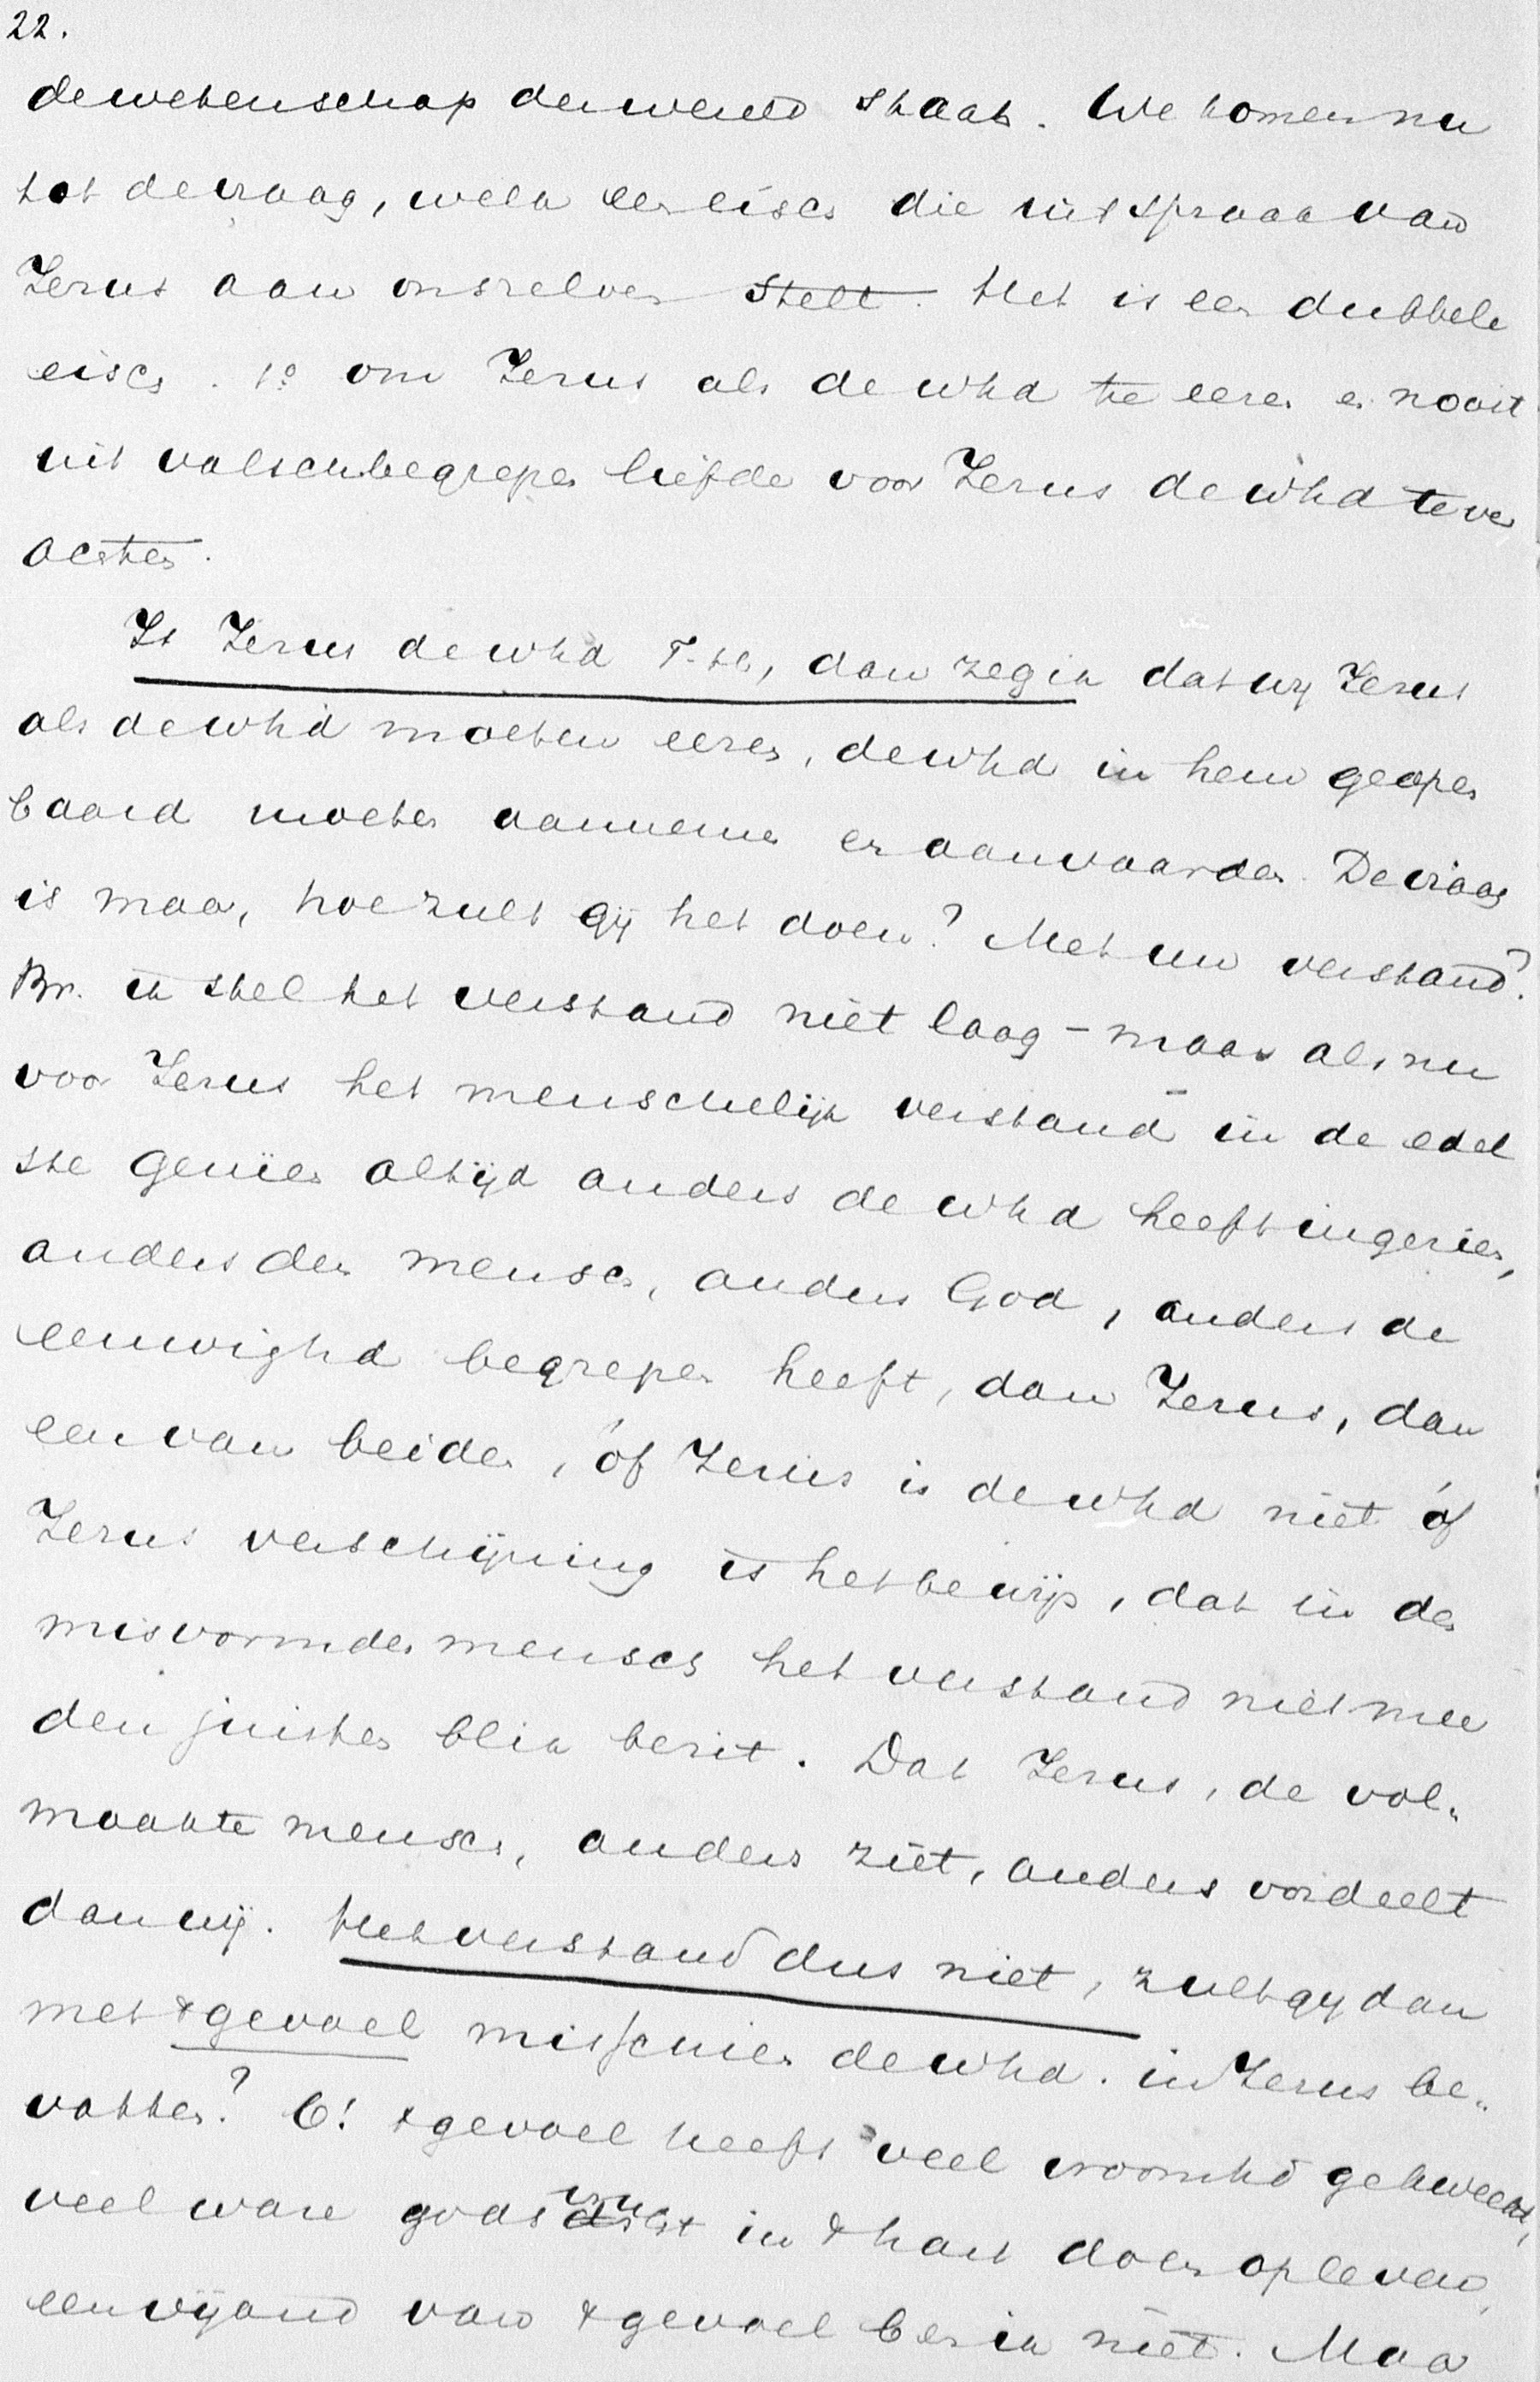 22.
de wetenschap der wereld staat. We komen nu
tot de vraag, welk een eisch die uitspraak van
Jezus aan onszelven stelt. Het is een dubbele
eisch. 1º om Jezus als de whd te eeren en nooit
uit valsch begrepen liefde voor Jezus de whd te ver
achten.
Is Jezus de whd T.h., dan zeg ik dat wij Jezus
als de whd moeten eeren, de whd in hem geopen
baard moeten aannemen en aanvaarden. De vraag
is maar, hoe zult gij het doen? Met uw verstand?
Br. ik stel het verstand niet laag - maar als nu
voor Jezus het menschelijk verstand in de edel
ste genieën altijd anders de whd heeft ingezien,
anders den mensch, anders God, anders de
eeuwighd begrepen heeft, dan Jezus, dan
een van beiden, óf Jezus is de whd niet óf
Jezus verschijning is het bewijs, dat in den
misvormden mensch het verstand niet meer
den juisten blik bezit. Dat Jezus, de vol-
maakte mensch, anders ziet, anders oordeelt
dan wij. Het verstand dus niet, zult gij dan
met 't gevoel misschien de whd. in Jezus be-
vatten? O! 't gevoel heeft veel vroomhd gekweekt,
veel ware godsvrucht in 't hart doen opleven,
een vijand van 't gevoel ben ik niet. Maar